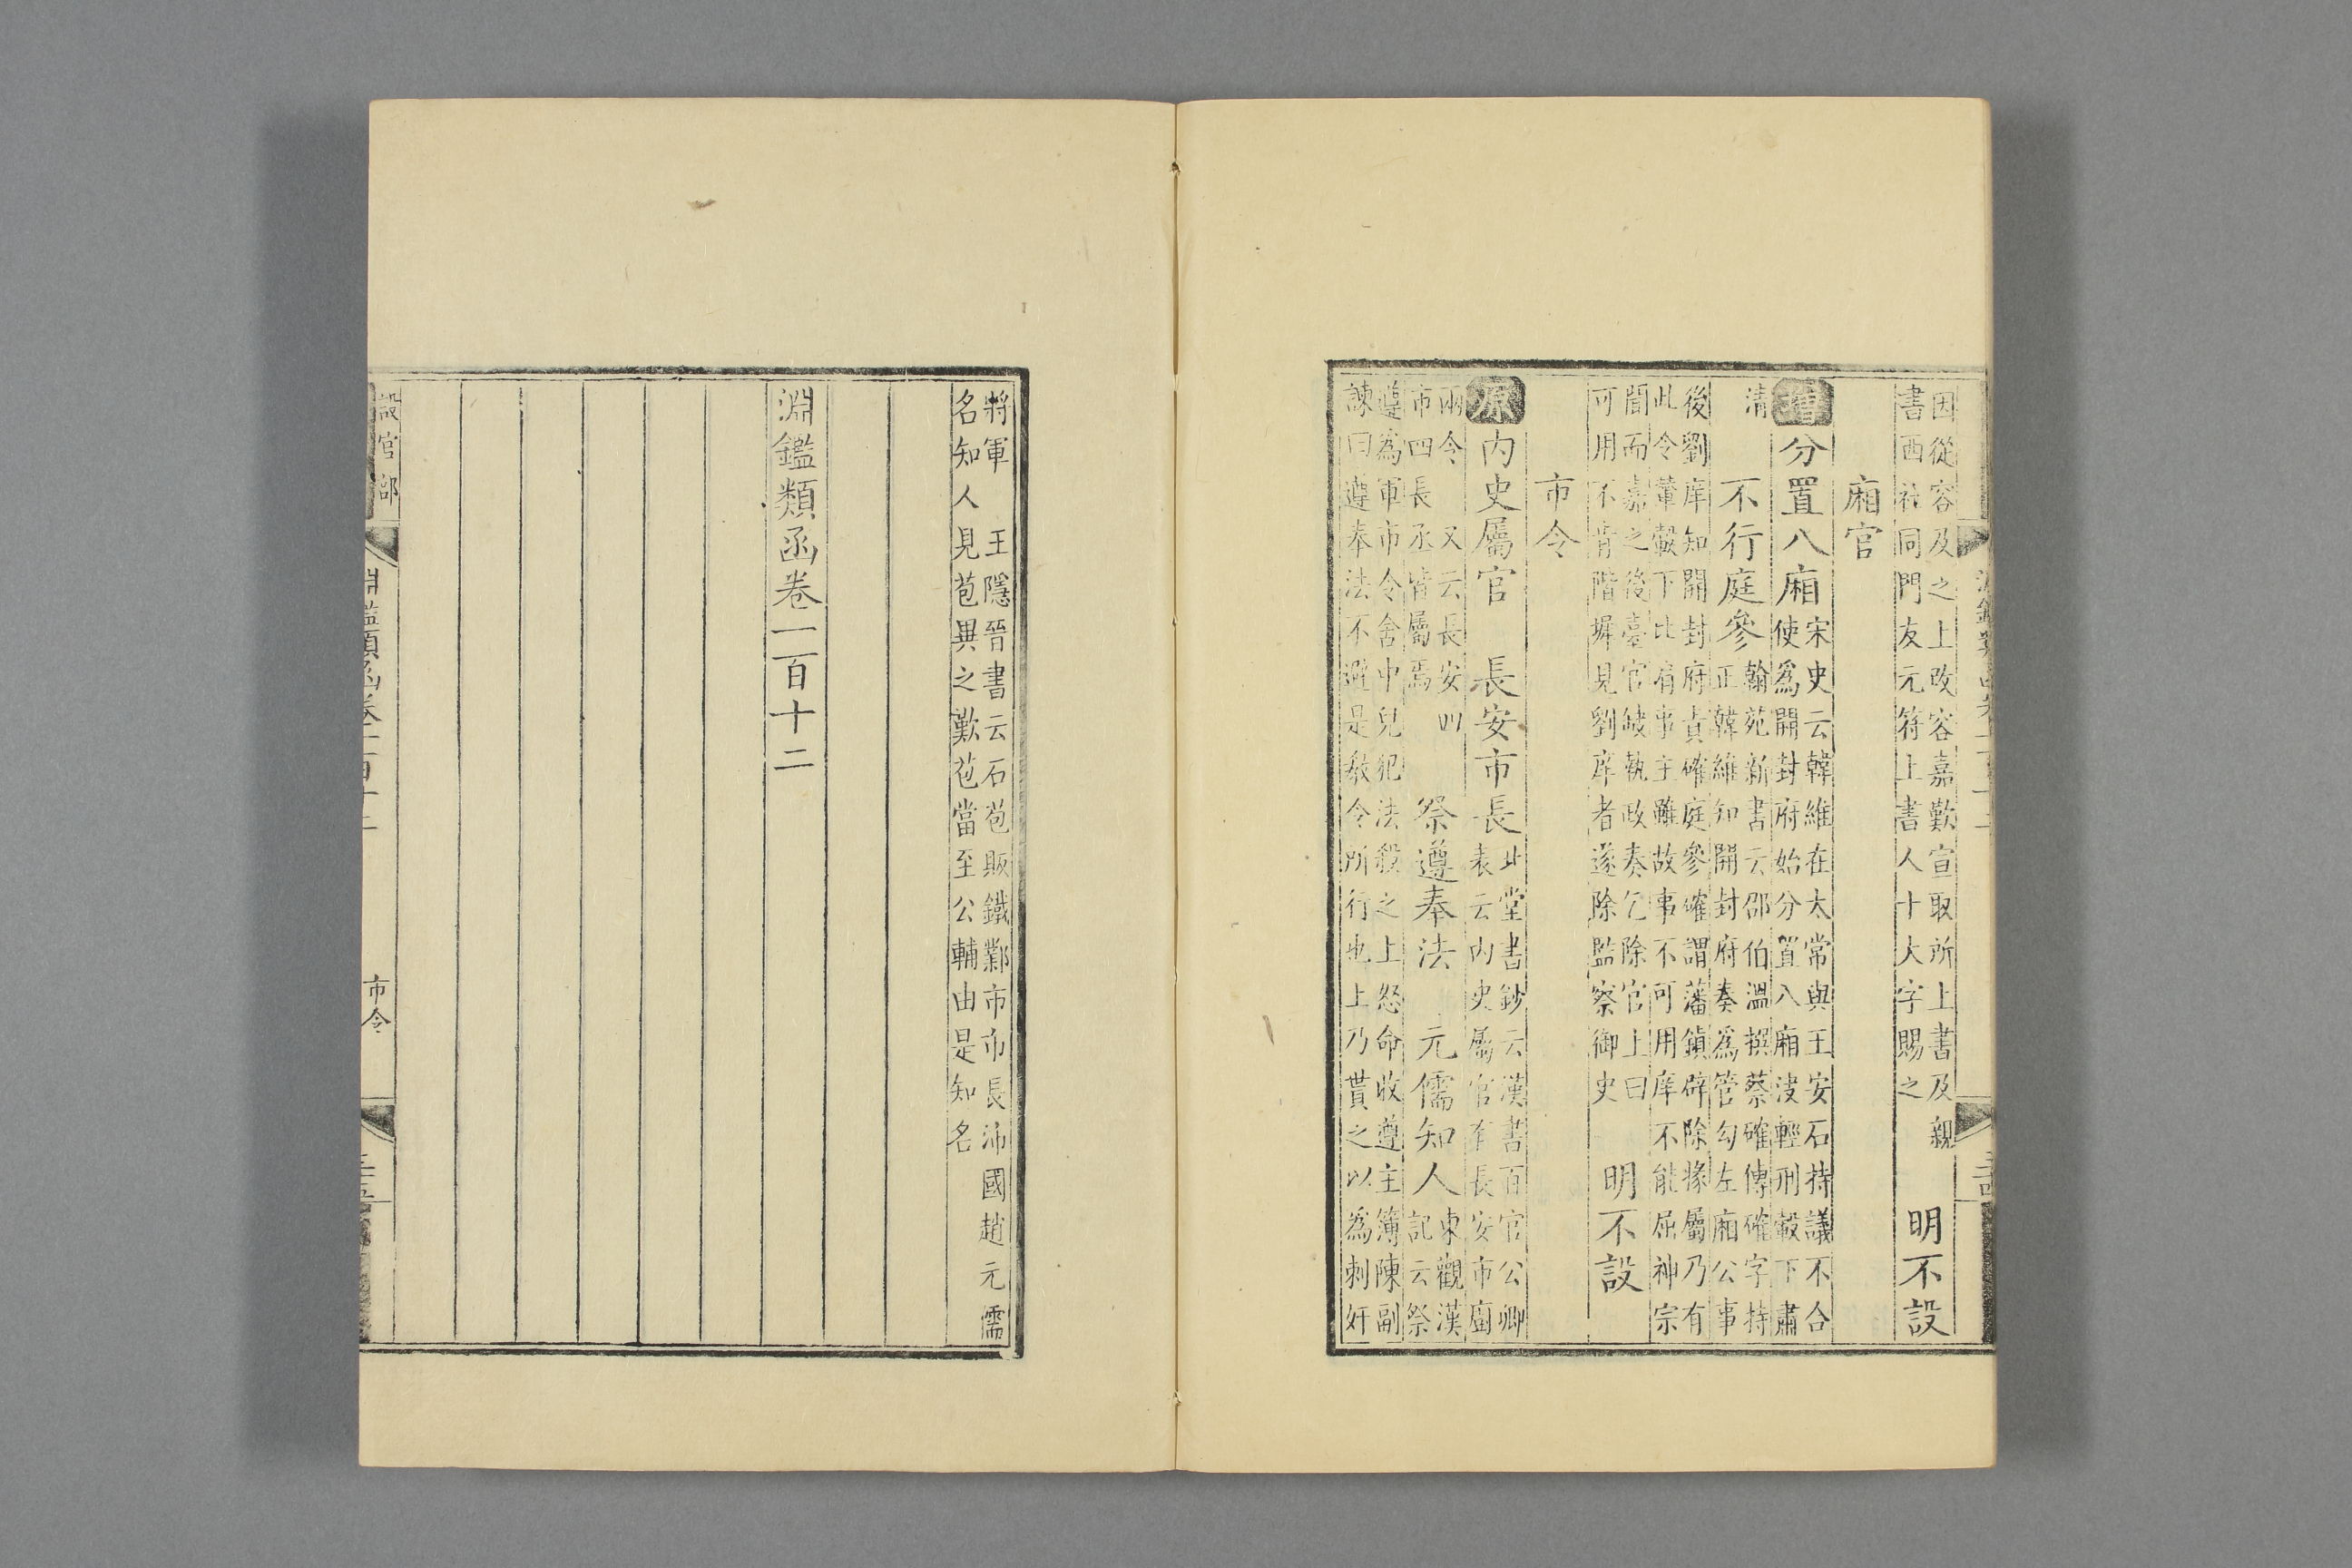 因從容及之上改容嘉歎宣取所上書及親
書西社同門友元符上書人十大字賜之
明不設
廂官
增 分置八廂
宋史云韓維在太常與王安石持議不合
使爲開封府始分置八廂決輕刑轂下肅
清
不行庭參
翰苑新書云邵伯溫撰蔡確傳確字持
正韓維知開封府奏爲管勾左廂公事
後劉庠知開封府責確庭參確謂藩鎮辟除掾屬乃有
此令輦轂下比肩事主雖故事不可用庠不能屈神宗
聞而嘉之後臺官缺執政奏乞除官上曰
可用不肯階墀見劉庠者遂除監察御史
明不設
市令
原 內史屬官 長安市長
北堂書鈔云漢書百官公卿
表云內史屬官有長安市廚
兩令 又云長安四
市四長丞皆屬焉
祭遵奉法 元儒知人
東觀漢
記云祭
遵爲軍市令舍中兒犯法殺之上怒命收遵主簿陳副
諫曰遵奉法不避是敎令所行也上乃貰之以爲刺奸
將軍 王隱晉書云石苞販鐵鄴市市長沛國趙元儒
名知人見苞異之歎苞當至公輔由是知名
淵鑑類函卷一百十二
設官部
淵鑑類函卷一百十二
市令